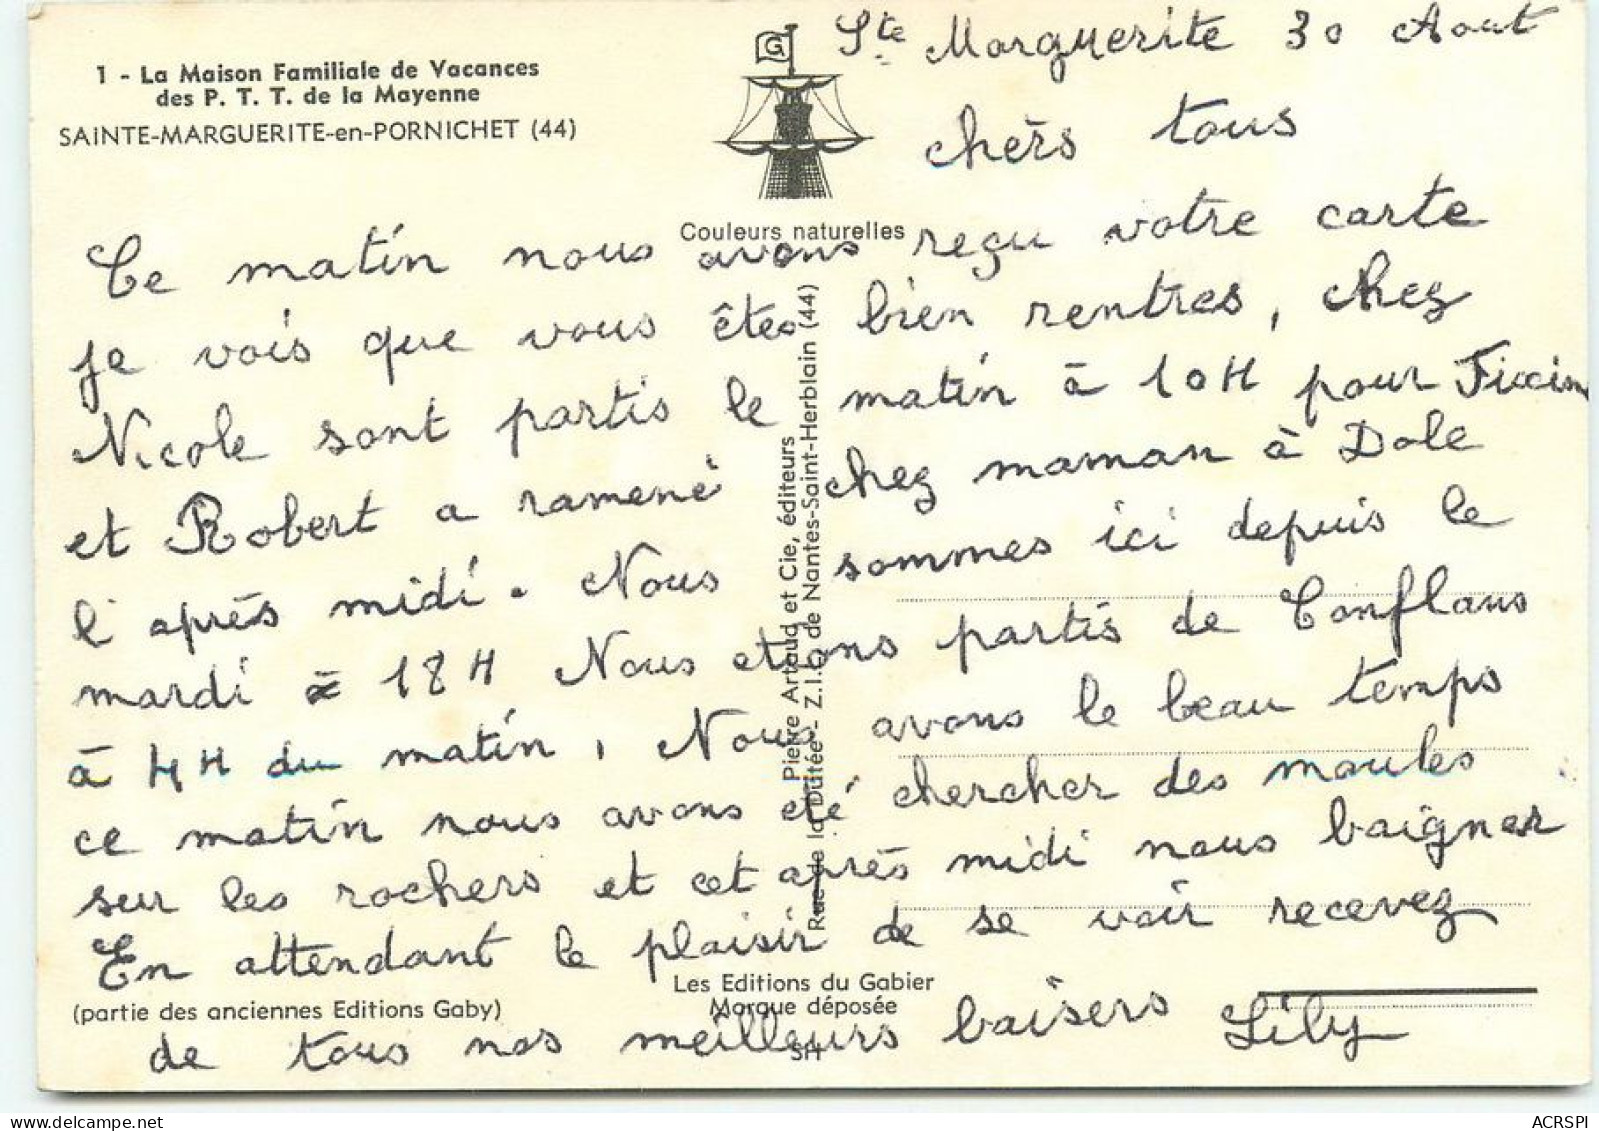 1 - La Maison Familiale de Vacances
des P. T. T. de la Mayenne
SAINTE-MARGUERITE-en-PORNICHET (44)
G
Couleurs naturelles
Ste Marguerite 30 Aout
chers tous
Ce matin nous avons reçu votre carte
je vois que vous êtes bien rentres, chez
Nicole sont partis le matin à 10H pour Fixin
et Robert a ramené chez maman à Dole
l'après midi. Nous sommes ici depuis le
mardi à 18H Nous etions partis de Conflans
à 4H du matin, Nous avons le beau temps
ce matin nous avons été chercher des moules
sur les rochers et cet après midi nous baigner
En attendant le plaisir de se voir recevez
de tous nos meilleurs baisers Lily
Pierre Artaud et Cie, éditeurs
Rue de la Dutée - Z.I.L. de Nantes-Saint-Herblain (44)
(partie des anciennes Editions Gaby)
Les Editions du Gabier
Marque déposée
SH
ACRSPI